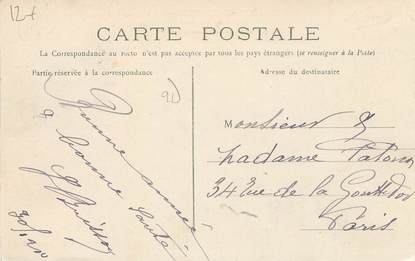 12+
CARTE POSTALE
La Correspondance au recto n'est pas acceptée par tous les pays étrangers (se renseigner à la Poste)
Partie réservée à la correspondance
Adresse du destinataire
Bonne année
& bonne Santé
Monsieur &
Madame
34 Rue de la Goutte d'or
Paris